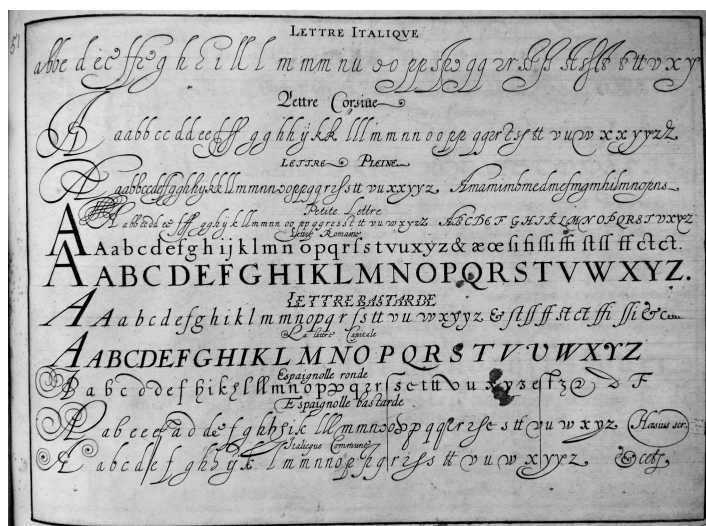 51
LETTRE ITALIQVE
abbe d e c ffi g h h i l l l m m m n u o o p p sp p g q q 2 r s st st t t v x y
Lettre Corsiue
A a a b b c c d d e e d ff g g h h ij k k lll m m n n o o p p q q 2 r s s tt v u w x x y y z z
LETTRE PLEINE
A a a b b c c d e f g g h h ij k k l l m m n n o o p p q q r e s s tt v u x x y y z A m a m i m b m e d m e f m g m h i l m n o p n s
Petite Lettre
A a b b c d d e e f ff g g h ij k l m m n n o o p p q g r e s s t t v u w x y y z z ABCDEFGHIKLMNOPQRSTVXYZ
Lettre Romaine
A A a b c d e f g h i j k l m n o p q r ſ s t v u x y z & æ œ ſi fi ſſi ffi ſt ſſ ff ct ct.
A ABCDEFGHIKLMNOPQRSTVWXYZ.
LETTRE BASTARDE
A A a b c d e f g h i k l m m n o p q r ſ s t t v u w x y y z & ſt ſſ ff st ct ffi ſſi &c
La lettre Capitale
A ABCDEFGHIKLMNOPQRSTVUWXYZ
Espaignolle ronde
B a b c d d e f h i k l l l m n o p p q 2 r ſ s c t tt v u x y z e
Espaignolle bastarde
A a b e e e a d d e f g h h i k l l l m m n o o p p q q 2 r s e s tt v u w x y z Hasius scr.
Italicque Commune
A a b c d e f g h h ij k l m m n n o p p q r 2 s s tt v u w x y y z & cetz